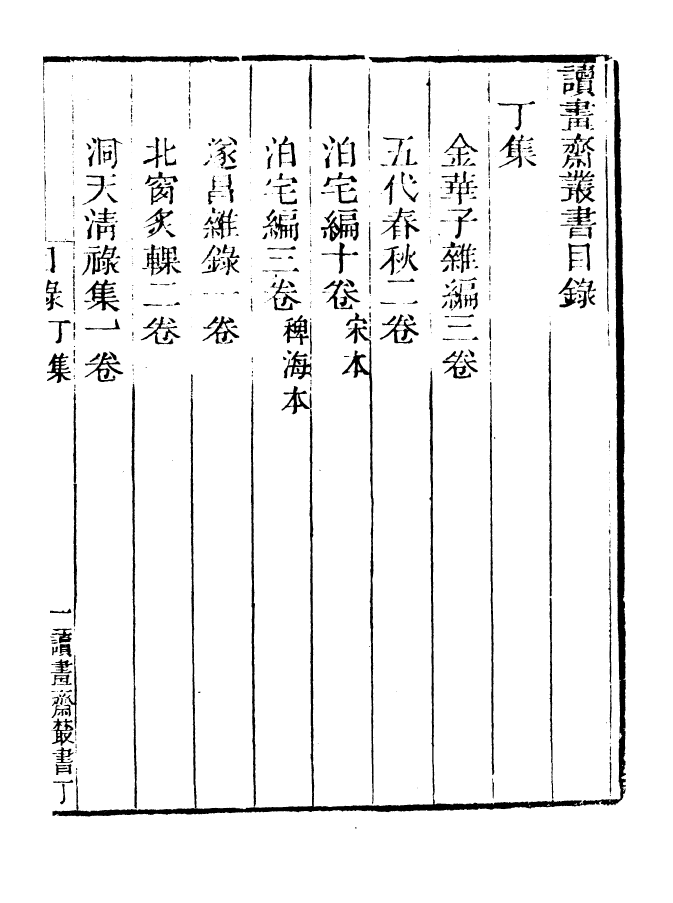 讀畫齋叢書目錄
丁集
金華子雜編三卷
五代春秋二卷
泊宅編十卷宋本
泊宅編三卷稗海本
遂昌雜錄一卷
北窗炙輠二卷
洞天清祿集一卷
目錄 丁集 一 讀畫齋叢書丁